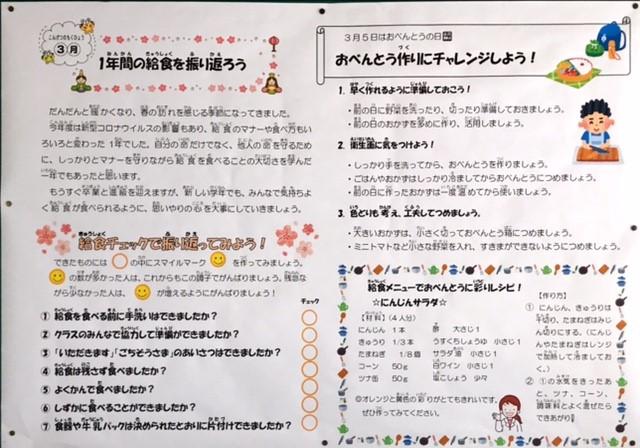 こんげつのもくひょう
3月
1年間の給食を振り返ろう
だんだんと暖かくなり、春の訪れを感じる季節になってきました。
今年度は新型コロナウイルスの影響もあり、給食のマナーや食べ方もい
ろいろと変わった1年でした。自分の命だけでなく、他人の命を守るため
に、しっかりとマナーを守りながら給食を食べることの大切さを学んだ
一年でもあったと思います。
もうすぐ卒業と進級を迎えますが、新しい学年でも、みんなで気持ちよ
く給食が食べられるように、思いやりの心を大事にしていきましょう。
給食チェックで振り返ってみよう!
できたものには○の中にスマイルマークを作ってみましょう。
の数が多かった人は、これからもこの調子でがんばりましょう。残念
ながら少なかった人は、が増えるようにがんばりましょう!
チェック
① 給食を食べる前に手洗いはできましたか?
② クラスのみんなで協力して準備ができましたか?
③ 「いただきます」「ごちそうさま」のあいさつはできましたか?
④ 給食は残さず食べましたか?
⑤ よくかんで食べましたか?
⑥ しずかに食べることができましたか?
⑦ 食器や牛乳パックは決められたとおりに片付けできましたか?
3月5日はおべんとうの日
おべんとう作りにチャレンジしよう!
1. 早く作れるように準備しておこう!
・前の日に野菜を洗ったり、切ったり準備しておきましょう。
・前の日のおかずを多めに作り、活用しましょう。
2. 衛生面に気をつけよう!
・しっかり手を洗ってから、おべんとうを作りましょう。
・ごはんやおかずはしっかり冷ましてからおべんとうにつめましょう。
・前の日に作ったおかずは一度温めてから使いましょう。
3. 色どりも考え、工夫してつめましょう。
・大きいおかずは、小さく切っておべんとう箱につめましょう。
・ミニトマトなど小さな野菜を入れ、すきまができないようにつめましょう。
給食メニューでおべんとうに彩りレシピ!
☆にんじんサラダ☆
【材料】(4人分)
にんじん 1本 酢 大さじ1
きゅうり 1/3本 うすくちしょうゆ 小さじ1
たまねぎ 1/8個 サラダ油 小さじ1
コーン 50g 白ワイン 小さじ1
ツナ缶 50g 塩こしょう 少々
◎オレンジと黄色の彩りがとてもきれいです。
ぜひ作ってみてください。
【作り方】
① にんじん、きゅうりは
千切り、たまねぎはみじ
ん切りにする。(にんじ
んやたまねぎはレンジ
で加熱して冷ましてお
く。)
② ①の水気をきったあ
と、ツナ、コーン、
調味料とよく混ぜたら
できあがり!